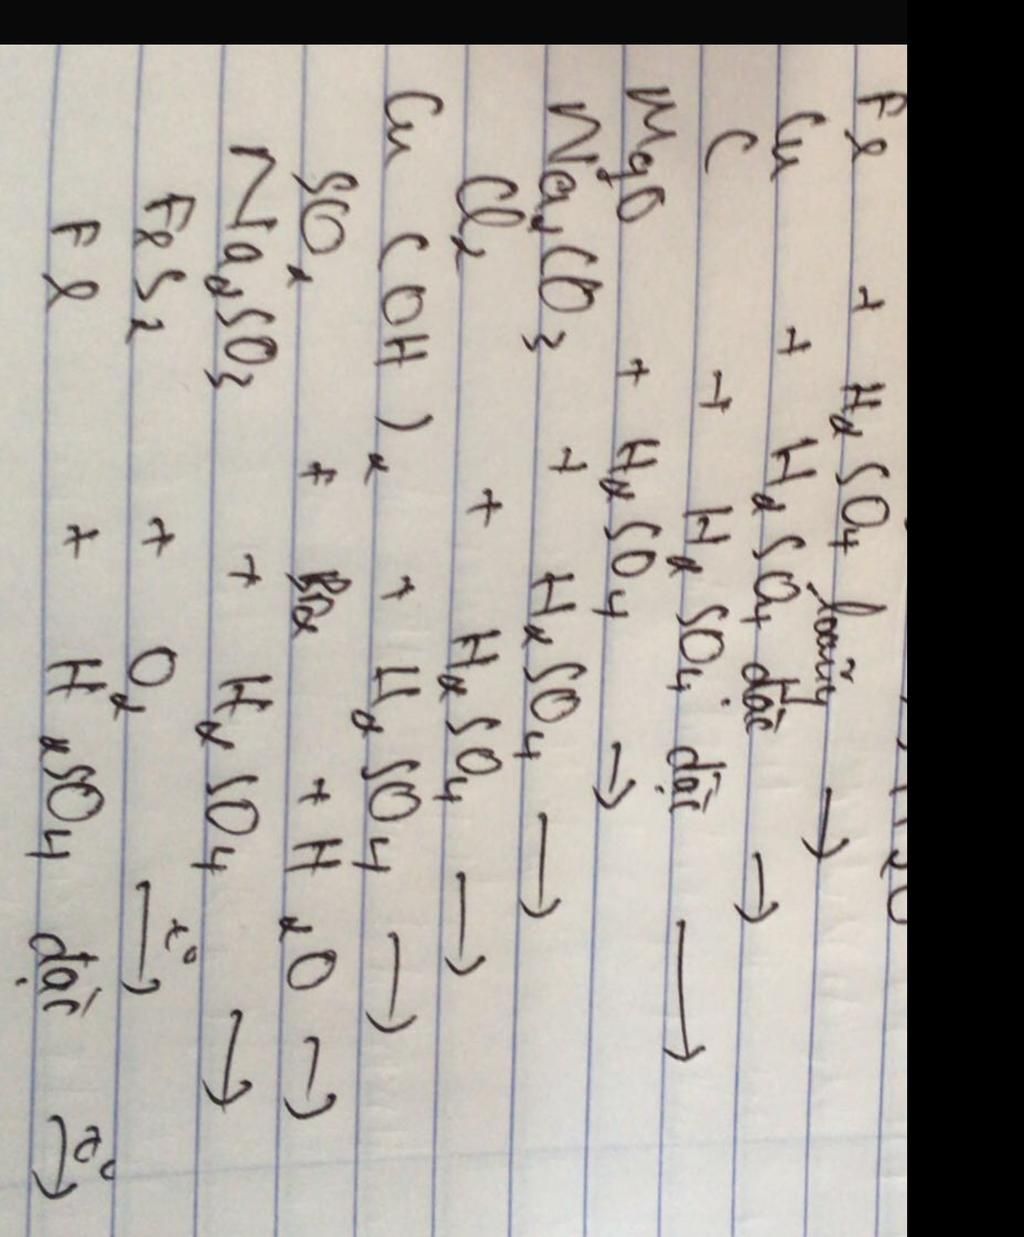 Fe + H2SO4 loãng →
Cu + H2SO4 đặc →
C + H2SO4 đặc →
MgO + H2SO4 →
Na2CO3 + H2SO4 →
Cl2 + H2SO4 →
Cu(OH)2 + H2SO4 →
SO2 + + H2O →
Na2SO3 + H2SO4 →
FeS2 + O2 t° →
Fe + H2SO4 đặc t° →